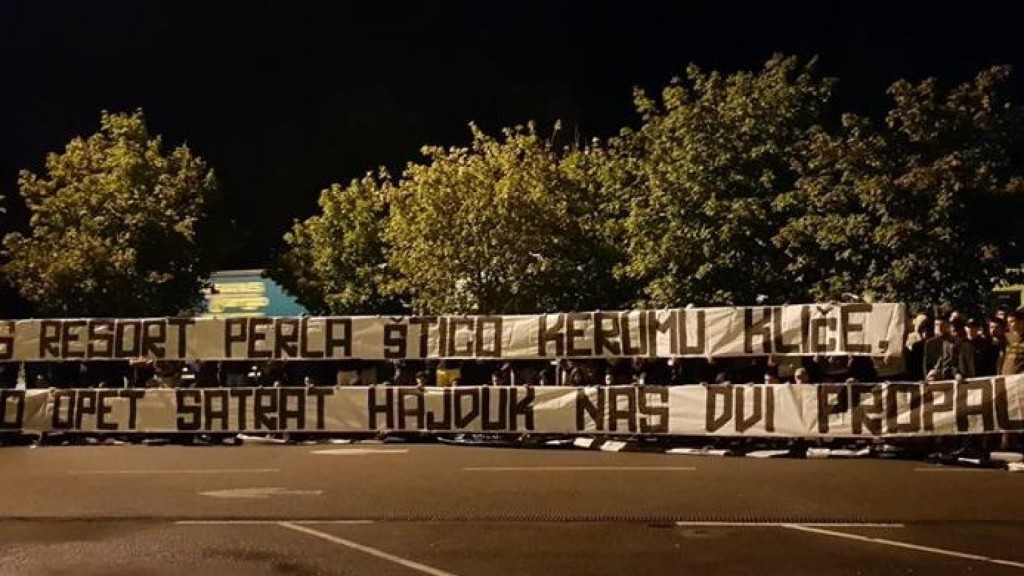 RESORT PERLA ŠTICO KERUMU KLIČE,
OPET SATRAT HAJDUK NAS DVI PROPAL